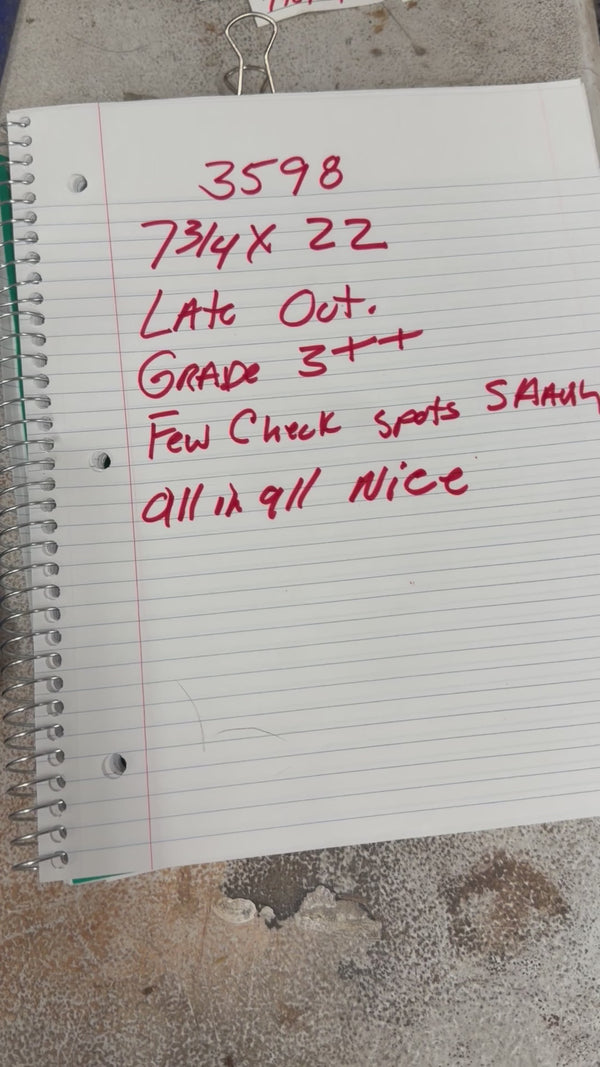 3598
7 3/4 X 22
LATE Oct.
GRADE 3++
Few Check spots
all in all Nice